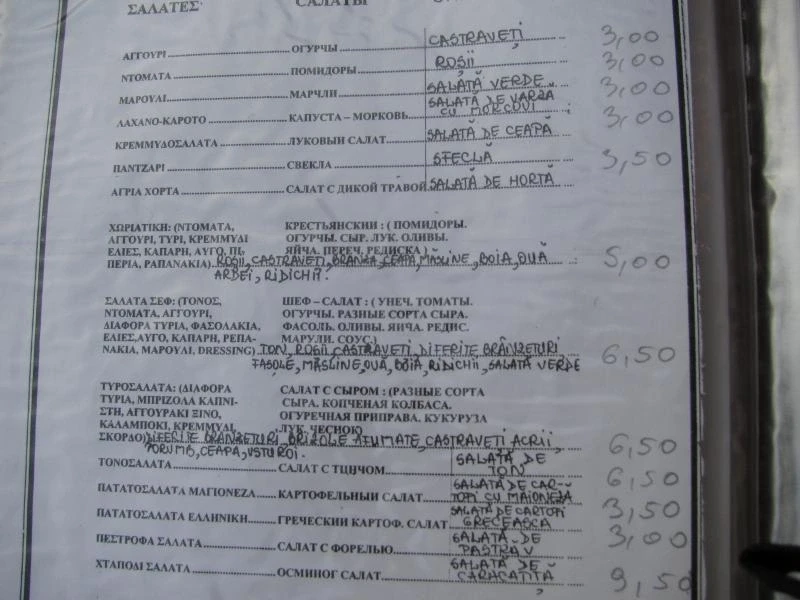 ΣΑΛΑΤΕΣ САЛАТЫ
ΑΓΓΟΥΡΙ ОГУРЧЫ CASTRAVEȚI 3,00
ΝΤΟΜΑΤΑ ПОМИДОРЫ ROȘII 3,00
ΜΑΡΟΥΛΙ МАРЧЛИ SALATĂ VERDE 3,00
ΛΑΧΑΝΟ-ΚΑΡΟΤΟ КАПУСТА – МОРКОВЬ SALATĂ DE VARZĂ CU MORCOVI 3,00
ΚΡΕΜΜΥΔΟΣΑΛΑΤΑ ЛУКОВЫИ САЛАТ SALATĂ DE CEAPĂ
ΠΑΝΤΖΑΡΙ СВЕКЛА SFECLĂ 3,50
ΑΓΡΙΑ ΧΟΡΤΑ САЛАТ С ДИКОЙ ТРАВОЙ SALATĂ DE HORTĂ
ΧΩΡΙΑΤΙΚΗ: (ΝΤΟΜΑΤΑ, КРЕСТЬЯНСКИИ : ( ПОМИДОРЫ.
ΑΓΓΟΥΡΙ, ΤΥΡΙ, ΚΡΕΜΜΥΔΙ ОГУРЧЫ. СЫР. ЛУК. ОЛИВЫ.
ΕΛΙΕΣ, ΚΑΠΑΡΗ, ΑΥΓΟ, ΠΙ, ЯИЧА. ПЕРЕЧ. РЕДИСКА )
ΠΕΡΙΑ, ΡΑΠΑΝΑΚΙΑ) ROȘII, CASTRAVEȚI, BRANZA, CEAPA, MĂSLINE, BOIA, OUĂ 5,00
ARDEI, RIDICHII.
ΣΑΛΑΤΑ ΣΕΦ: (ΤΟΝΟΣ, ШЕФ – САЛАТ : ( УНЕЧ. ТОМАТЫ.
ΝΤΟΜΑΤΑ, ΑΓΓΟΥΡΙ, ОГУРЧЫ. РАЗНЫЕ СОРТА СЫРА.
ΔΙΑΦΟΡΑ ΤΥΡΙΑ, ΦΑΣΟΛΑΚΙΑ, ФАСОЛЬ. ОЛИВЫ. ЯИЧА. РЕДИС.
ΕΛΙΕΣ,ΑΥΓΟ, ΚΑΠΑΡΗ, ΡΕΠΑ- МАРУЛИ. СОУС.)
ΝΑΚΙΑ, ΜΑΡΟΥΛΙ, DRESSING) TON, ROȘII, CASTRAVEȚI, DIFERITE BRÂNZETURI 6,50
FASOLE, MĂSLINE, OUĂ, BOIA, RIDICHII, SALATĂ VERDE
ΤΥΡΟΣΑΛΑΤΑ: (ΔΙΑΦΟΡΑ САЛАТ С СЫРОМ : (РАЗНЫЕ СОРТА
ΤΥΡΙΑ, ΜΠΡΙΖΟΛΑ ΚΑΠΝΙ- СЫРА. КОПЧЕНАЯ КОЛБАСА.
ΣΤΗ, ΑΓΓΟΥΡΑΚΙ ΞΙΝΟ, ОГУРЕЧНАЯ ПРИПРАВА. КУКУРУЗА
ΚΑΛΑΜΠΟΚΙ, ΚΡΕΜΜΥΔΙ, ЛУК. ЧЕСНОК)
ΣΚΟΡΔΟ) DIFERITE BRANZETURI, BRIZOLE AFUMATE, CASTRAVETI ACRII, 6,50
PORUMB, CEAPA, USTUROI.
ΤΟΝΟΣΑΛΑΤΑ САЛАТ С ТЦЦЧОМ SALATĂ DE TON 6,50
ΠΑΤΑΤΟΣΑΛΑΤΑ ΜΑΓΙΟΝΕΖΑ КАРТОФЕЛЬНЫИ САЛАТ SALATĂ DE CARTOFI CU MAIONEZA 3,50
ΠΑΤΑΤΟΣΑΛΑΤΑ ΕΛΛΗΝΙΚΗ ГРЕЧЕСКИИ КАРТОФ. САЛАТ SALATĂ DE CARTOFI GRECEASCA 3,00
ΠΕΣΤΡΟΦΑ ΣΑΛΑΤΑ САЛАТ С ФОРЕЛЬЮ SALATĂ DE PASTRAV
ΧΤΑΠΟΔΙ ΣΑΛΑΤΑ ОСМИНОГ САЛАТ SALATĂ DE CARACATIȚĂ 9,50